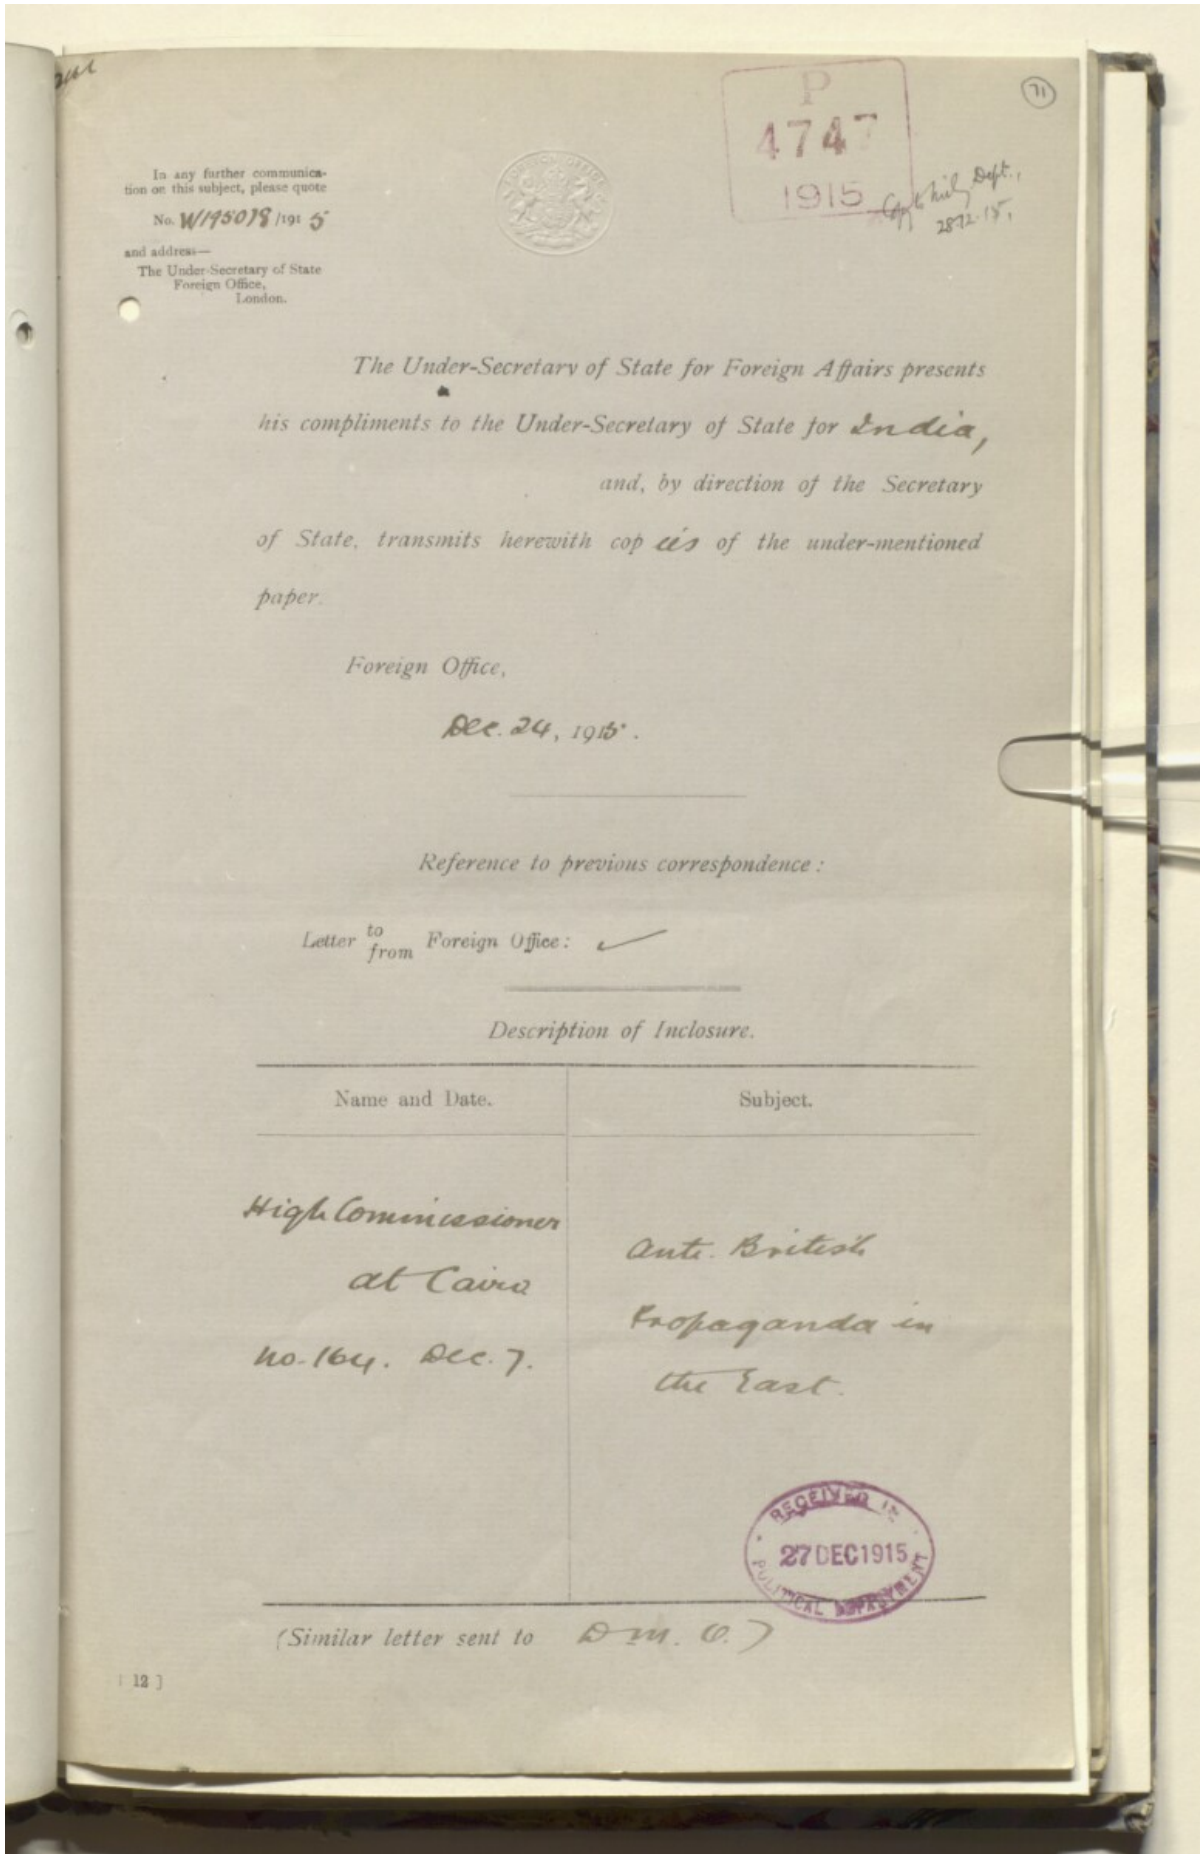 71
P
4747
1915
Copy to Mily Dept.,
28.12.15.
In any further communica-
tion on this subject, please quote
No. W/195078/1915
and address—
The Under-Secretary of State
Foreign Office,
London.
FOREIGN OFFICE
The Under-Secretary of State for Foreign Affairs presents
his compliments to the Under-Secretary of State for India,
and, by direction of the Secretary
of State, transmits herewith copies of the under-mentioned
paper.
Foreign Office,
Dec. 24, 1915.
Reference to previous correspondence:
Letter to from Foreign Office:
Description of Inclosure.
Name and Date.
Subject.
High Commissioner
at Cairo
No. 164. Dec. 7.
Anti-British
Propaganda in
the East.
RECEIVED IN
27 DEC 1915
POLITICAL DEPARTMENT
(Similar letter sent to D.M.O.)
[12]